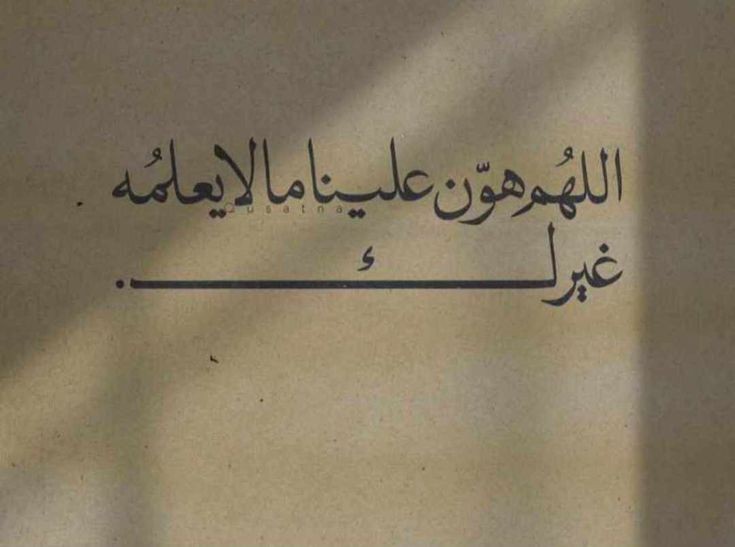 اللهُم هوّن علينا ما لا يعلمُه
Qusatna
غيرك.